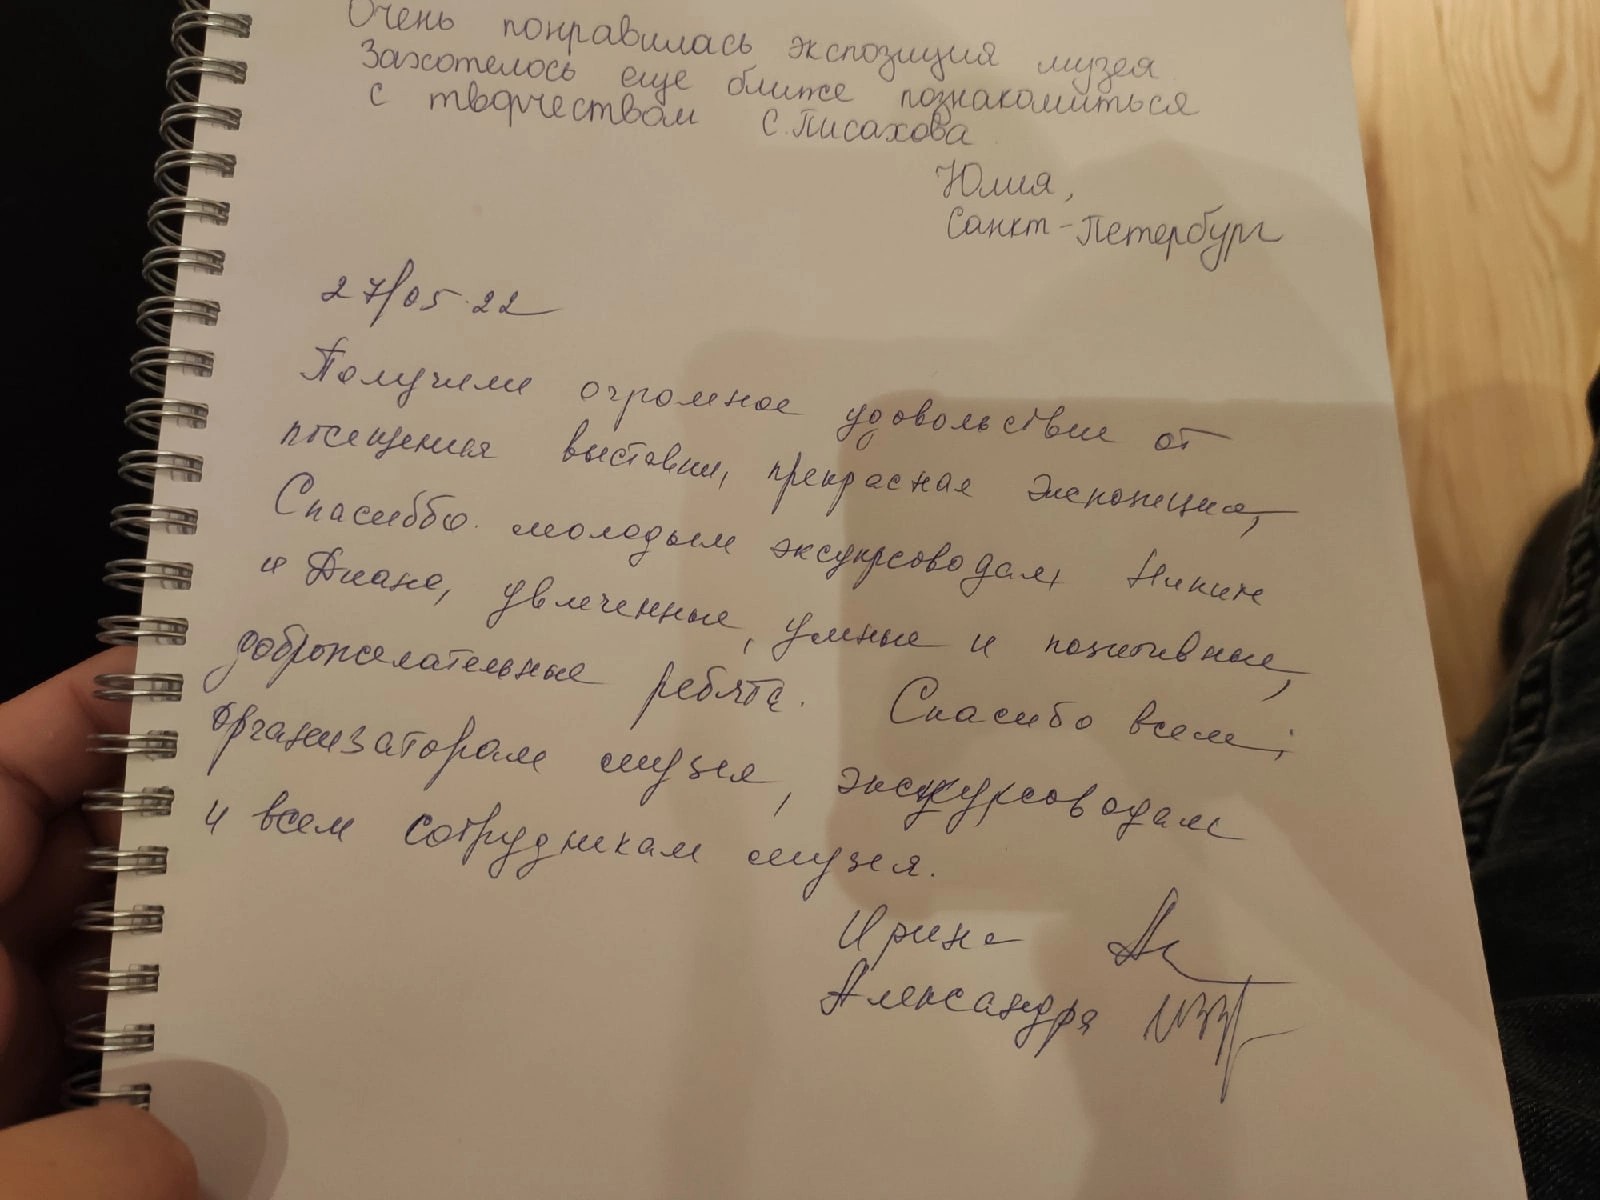 Очень понравилась экспозиция музея
Захотелось еще ближе познакомиться
с творчеством С. Писахова
Юлия,
Санкт-Петербург
27/05.22
Получили огромное удовольствие от
посещения выставки, прекрасная экспозиция,
Спасиббо молодым экскурсоводам Никите
и Диане, увлеченные, умные и позитивные,
доброжелательные ребята. Спасибо всем:
организаторам музея, экскурсоводам
и всем сотрудникам музея.
Ирина
Александра